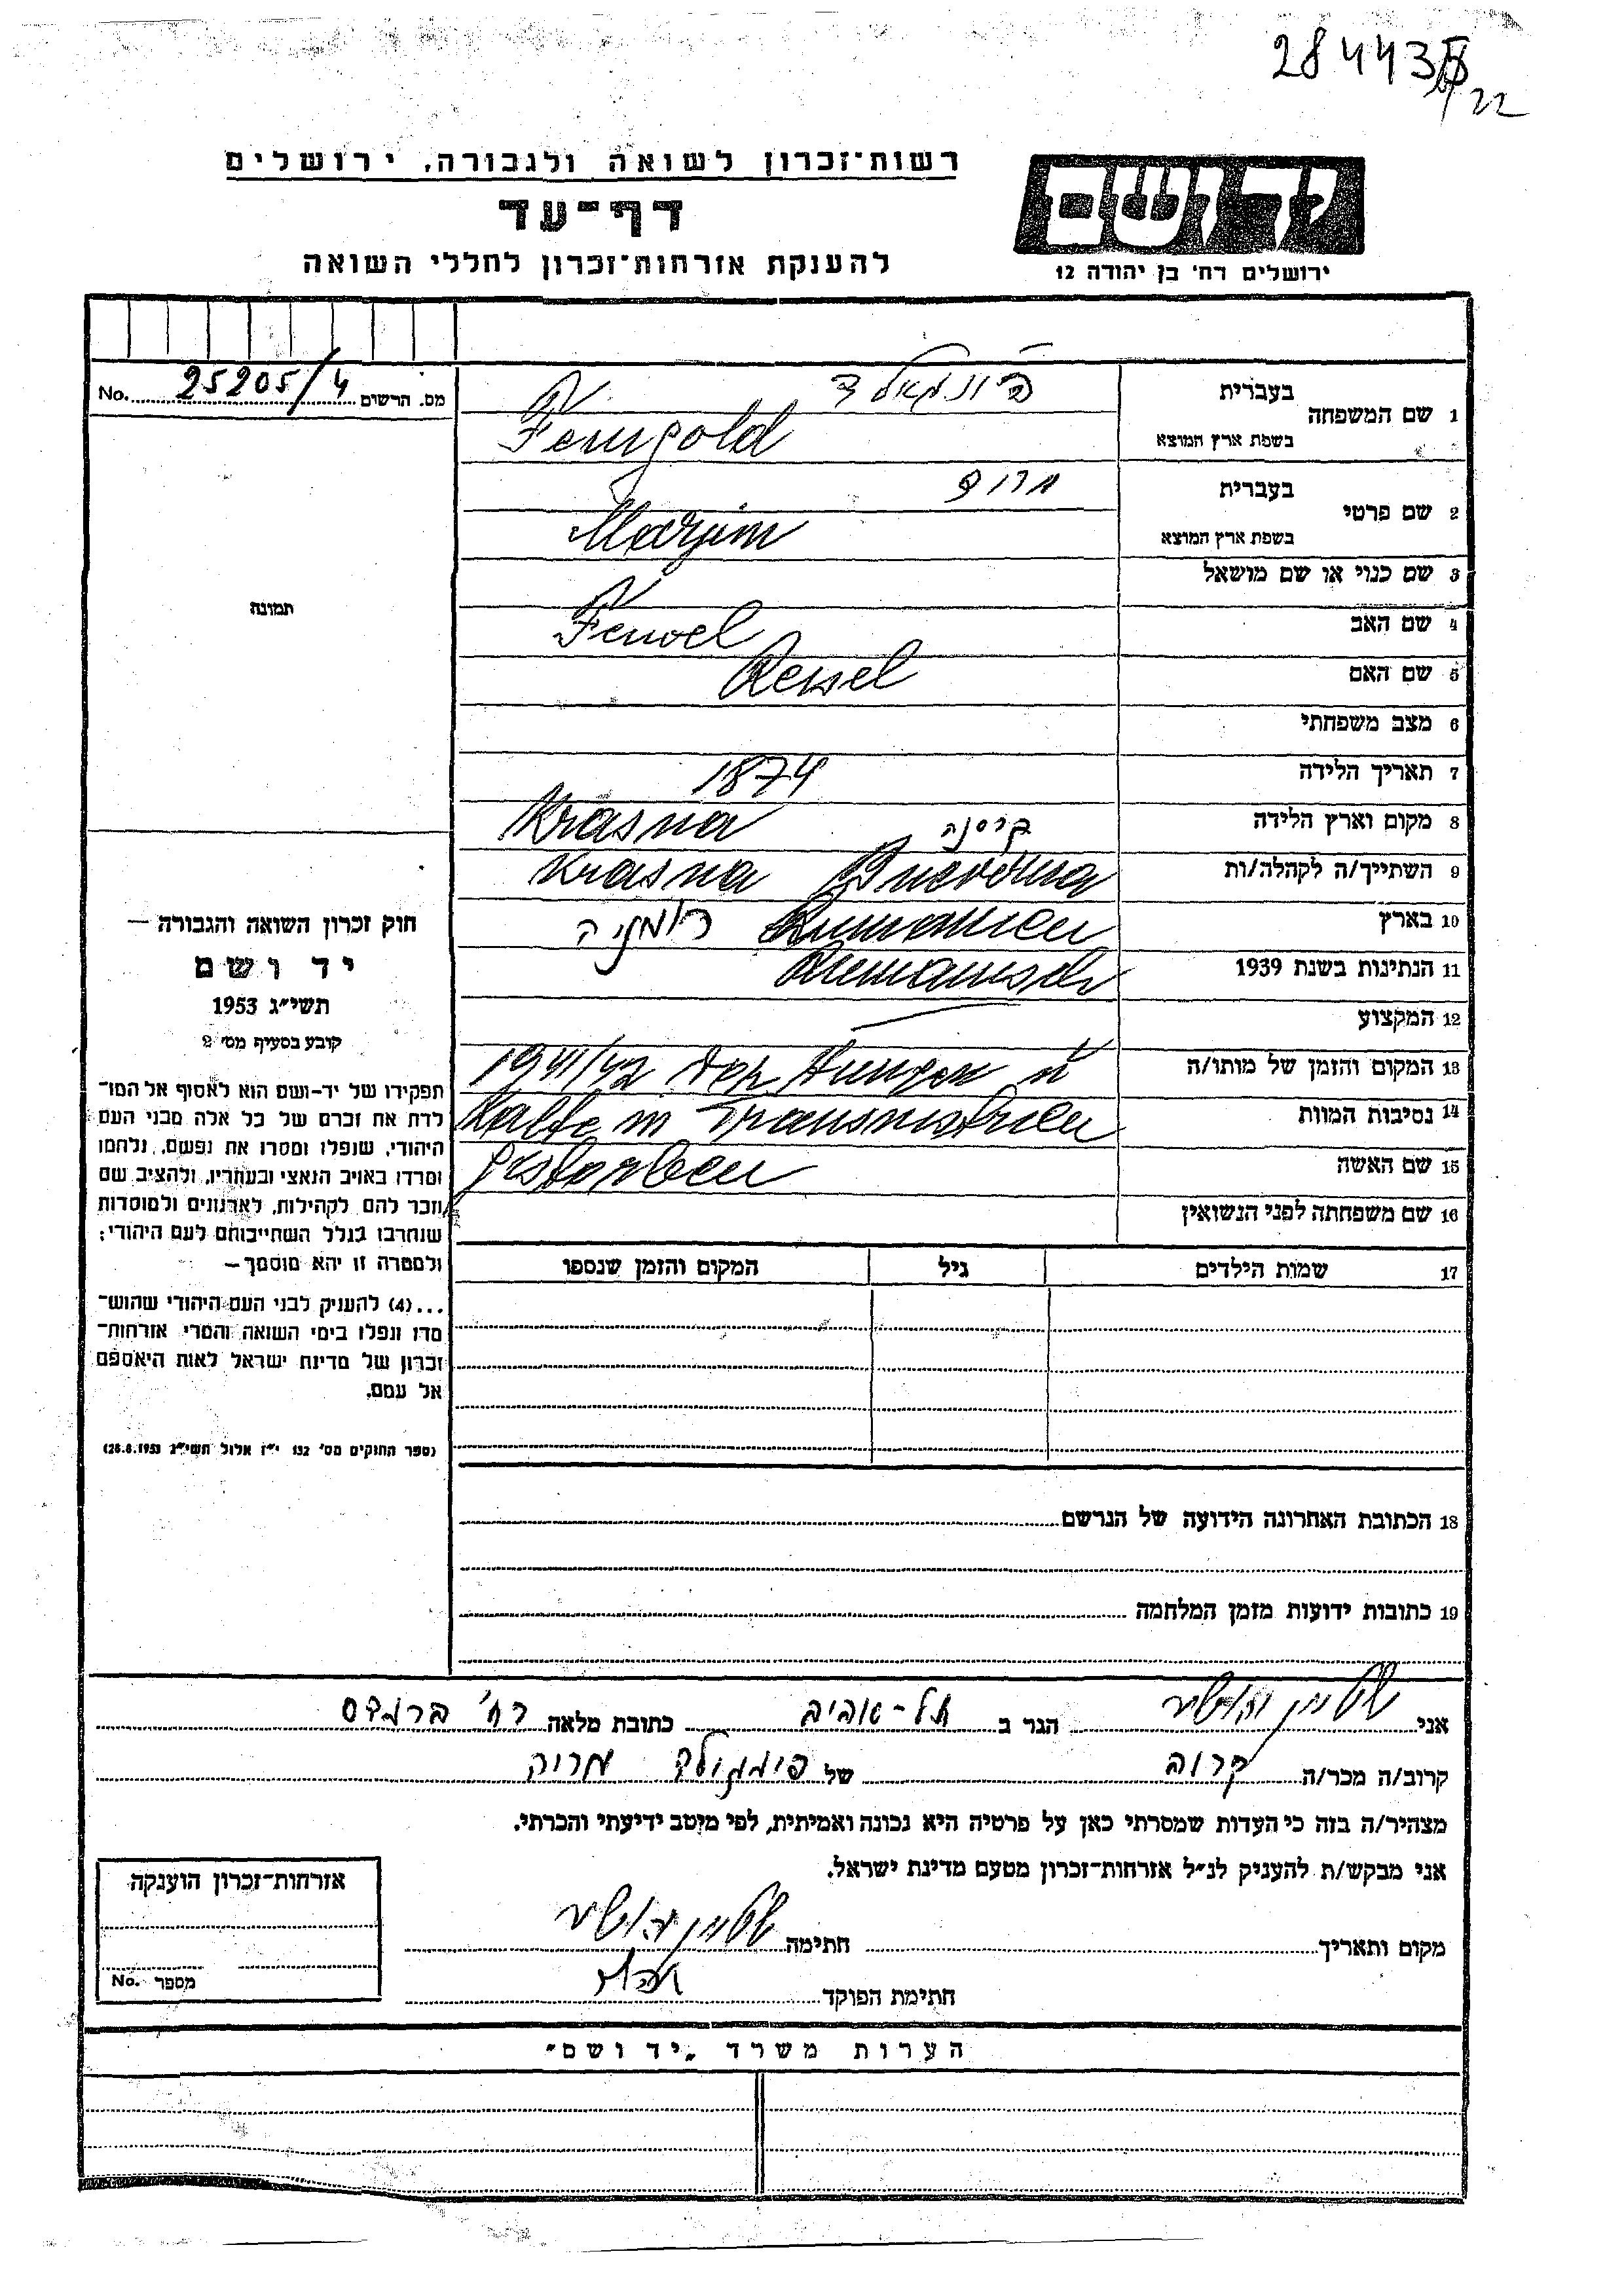 284435
22
רשות־זכרון לשואה ולגבורה, ירושלים
דף־עד
להענקת אזרחות־זכרון לחללי השואה
יד ושם
ירושלים רח' בן יהודה 12
מס. הרשום 25205/4 No.
תמונה
חוק זכרון השואה והגבורה —
יד ושם
תשי״ג 1953
קובע בסעיף מס׳ 2
תפקידו של יד-ושם הוא לאסוף אל המו־
לדת את זכרם של כל אלה מבני העם
היהודי, שנפלו ומסרו את נפשם, נלחמו
ומרדו באויב הנאצי ובעוזריו, ולהציב שם
וזכר להם לקהילות, לארגונים ולמוסדות
שנחרבו בגלל השתייכותם לעם היהודי;
ולמטרה זו יהא מוסמך —
...(4) להעניק לבני העם היהודי שהוש־
מדו ונפלו בימי השואה והמרי אזרחות־
זכרון של מדינת ישראל לאות היאספם
אל עמם.
(ספר החוקים מס׳ 132 י״ז אלול תשי״ג 28.8.1953)
1 שם המשפחה
בעברית
בשפת ארץ המוצא Feingold
2 שם פרטי
בעברית
בשפת ארץ המוצא
3 שם כנוי או שם מושאל
4 שם האב Feiwel
5 שם האם Reisel
6 מצב משפחתי
7 תאריך הלידה 1874
8 מקום וארץ הלידה קרסנה Krasna
9 השתייך/ה לקהלה/ות Krasna Bucovina
10 בארץ Rumanien רומניה
11 הנתינות בשנת 1939 Rumanisch
12 המקצוע
13 המקום והזמן של מותו/ה 1941/42 Hunger u
14 נסיבות המוות Kalte in Transnistrien
15 שם האשה gestorben
16 שם משפחתה לפני הנשואין
17 שמות הילדים גיל המקום והזמן שנספו
18 הכתובת האחרונה הידועה של הנרשם
19 כתובות ידועות מזמן המלחמה
אני שטיין הגר ב תל-אביב כתובת מלאה רח' ברנדס
קרוב/ה מכר/ה קרוב של פיינגולד
מצהיר/ה בזה כי העדות שמסרתי כאן על פרטיה היא נכונה ואמיתית, לפי מיטב ידיעתי והכרתי.
אני מבקש/ת להעניק לנ״ל אזרחות־זכרון מטעם מדינת ישראל.
מקום ותאריך חתימה שטיין
חתימת הפוקד
אזרחות־זכרון הוענקה
מספר No.
הערות משרד „יד ושם״